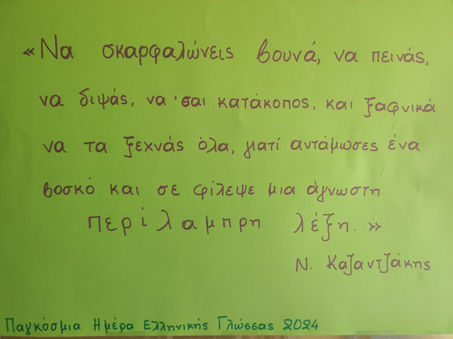 «Να σκαρφαλώνεις βουνά, να πεινάς,
να διψάς, να 'σαι κατάκοπος, και ξαφνικά
να τα ξεχνάς όλα, γιατί αντάμωσες ένα
βοσκό και σε φίλεψε μια άγνωστη
περίλαμπρη λέξη.»
Ν. Καζαντζάκης
Παγκόσμια Ημέρα Ελληνικής Γλώσσας 2024